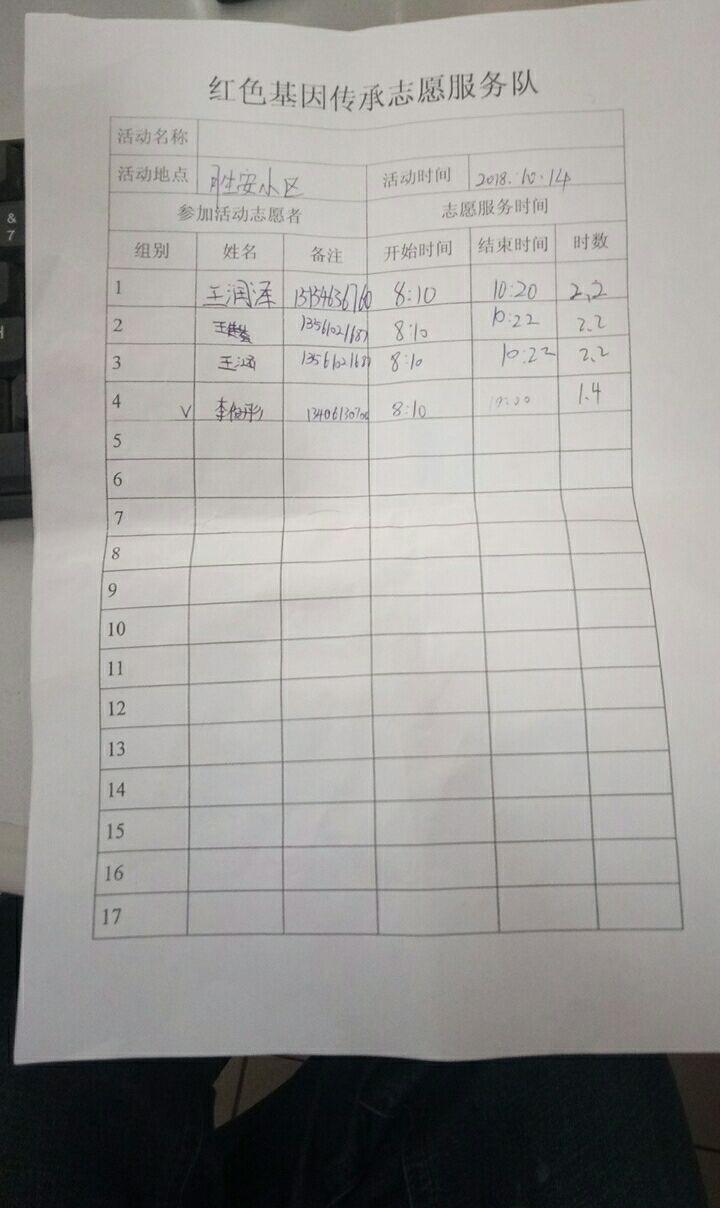 红色基因传承志愿服务队
活动名称
活动地点 胜安小区 活动时间 2018.10.14
参加活动志愿者 志愿服务时间
组别 姓名 备注 开始时间 结束时间 时数
1 王润泽 8:10 10:20 2.2
2 王 13561021687 8:10 10:22 2.2
3 王涵 13561021687 8:10 10:22 2.2
4 V 李俊彤 13406130706 8:10 1.4
5
6
7
8
9
10
11
12
13
14
15
16
17
& 7